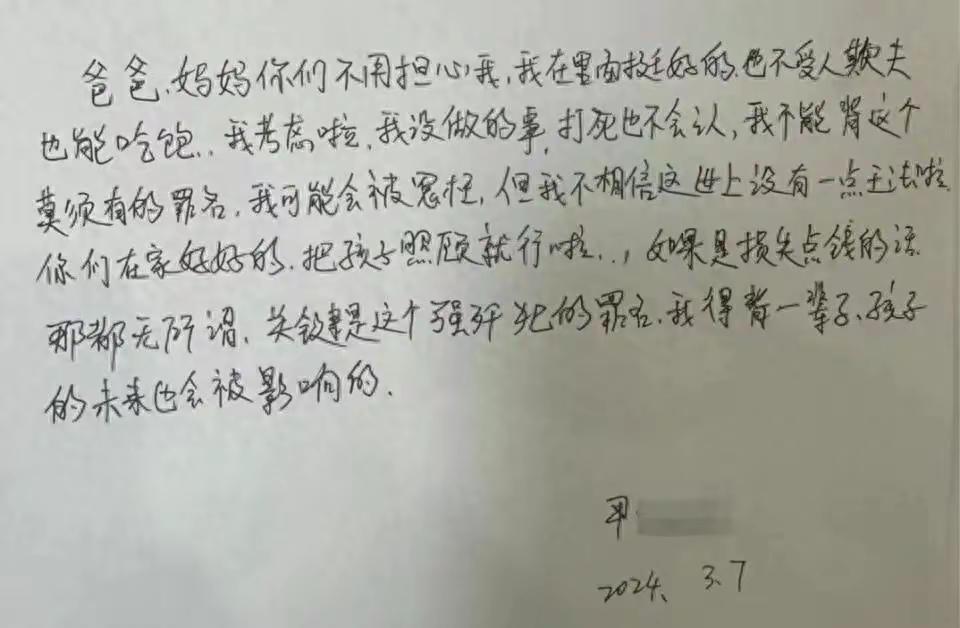 爸爸、妈妈你们不用担心我，我在里面挺好的、也不受人欺夫
也能吃饱，，我考虑啦，我没做的事，打死也不会认，我不能背这个
莫须有的罪名，我可能会被冤枉，但我不相信这世上没有一点王法啦，
你们在家好好的、把孩子照顾就行啦．．，如果是损失点钱的话
那都无所谓，关键是这个强奸犯的罪名、我得背一辈子、孩子
的未来也会被影响的、
2024、3.7